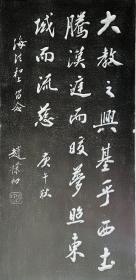 大教之興基乎西土
騰漢庭而皎夢照東
域而流慈 庚午秋
海法聖留念 趙樸初